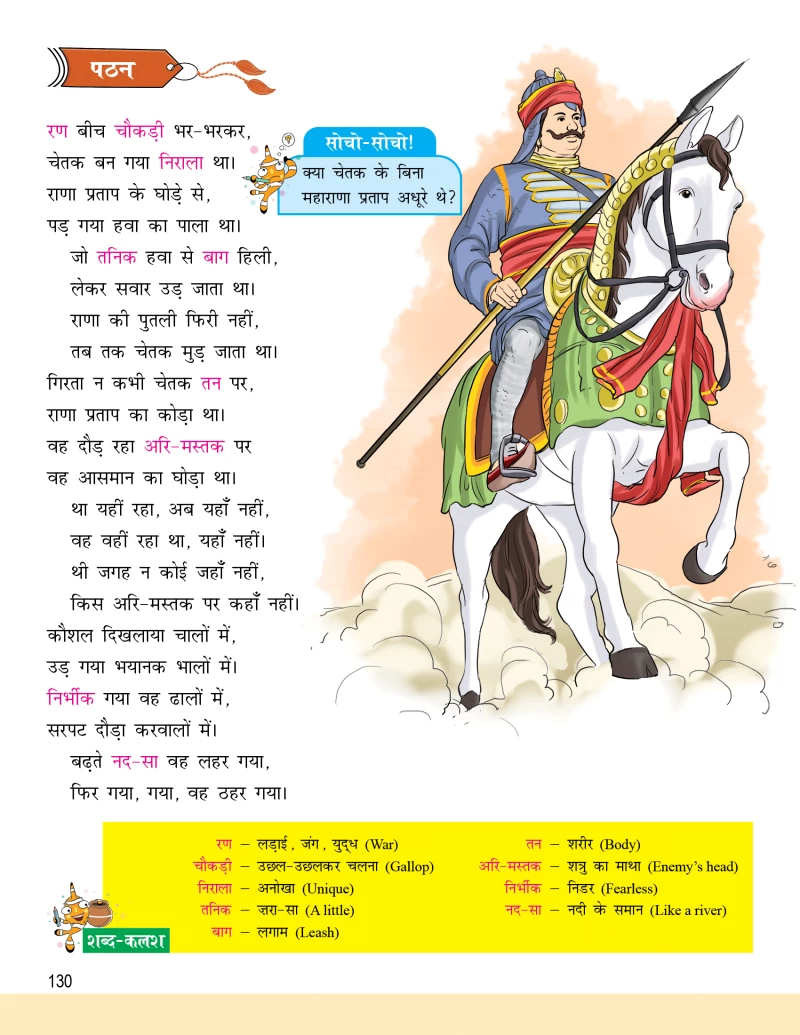 पठन
रण बीच चौकड़ी भर-भरकर,
चेतक बन गया निराला था।
राणा प्रताप के घोड़े से,
पड़ गया हवा का पाला था।
जो तनिक हवा से बाग हिली,
लेकर सवार उड़ जाता था।
राणा की पुतली फिरी नहीं,
तब तक चेतक मुड़ जाता था।
गिरता न कभी चेतक तन पर,
राणा प्रताप का कोड़ा था।
वह दौड़ रहा अरि-मस्तक पर
वह आसमान का घोड़ा था।
था यहीं रहा, अब यहाँ नहीं,
वह वहीं रहा था, यहाँ नहीं।
थी जगह न कोई जहाँ नहीं,
किस अरि-मस्तक पर कहाँ नहीं।
कौशल दिखलाया चालों में,
उड़ गया भयानक भालों में।
निर्भीक गया वह ढालों में,
सरपट दौड़ा करवालों में।
बढ़ते नद-सा वह लहर गया,
फिर गया, गया, वह ठहर गया।
सोचो-सोचो!
क्या चेतक के बिना
महाराणा प्रताप अधूरे थे?
रण – लड़ाई, जंग, युद्ध (War)
चौकड़ी – उछल-उछलकर चलना (Gallop)
निराला – अनोखा (Unique)
तनिक – ज़रा-सा (A little)
बाग – लगाम (Leash)
तन – शरीर (Body)
अरि-मस्तक – शत्रु का माथा (Enemy's head)
निर्भीक – निडर (Fearless)
नद-सा – नदी के समान (Like a river)
शब्द-कलश
130